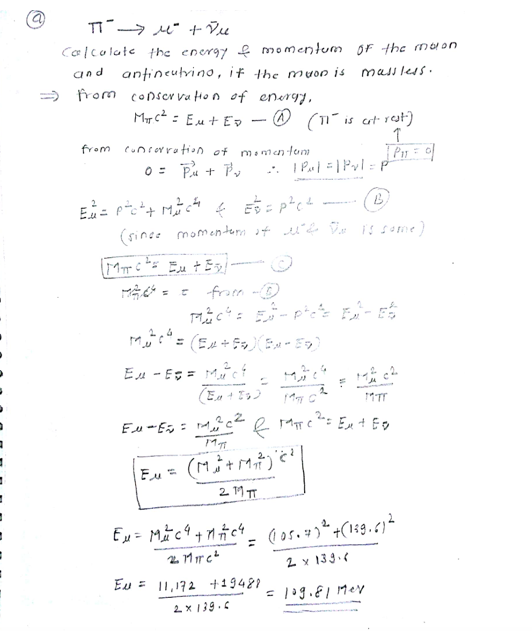 ⓐ
π⁻ → μ⁻ + ν̄μ
Calculate the energy & momentum of the muon
and antineutrino, if the muon is massless.
⇒ from conservation of energy,
Mπc² = Eμ + Eν̄ — Ⓐ (π⁻ is at rest)
↑
from conservation of momentum Pπ = 0
0 = P⃗μ + P⃗ν ∴ |Pμ| = |Pν| = P
Eμ² = p²c² + Mμ²c⁴ & Eν̄² = p²c² — Ⓑ
(since momentum of μ⁻ & ν̄μ is same)
Mπc² = Eμ + Eν̄ — Ⓒ
from — Ⓑ
Mμ²c⁴ = Eμ² - p²c² = Eμ² - Eν̄²
Mμ²c⁴ = (Eμ + Eν̄)(Eμ - Eν̄)
Eμ - Eν̄ = Mμ²c⁴ / (Eμ + Eν̄) = Mμ²c⁴ / Mπc² = Mμ²c² / Mπ
Eμ - Eν̄ = Mμ²c² / Mπ & Mπc² = Eμ + Eν̄
Eμ = (Mμ² + Mπ²)c² / 2Mπ
Eμ = Mμ²c⁴ + Mπ²c⁴ / 2Mπc² = (105.7)² + (139.6)² / 2 × 139.6
Eμ = 11,172 + 19488 / 2 × 139.6 = 109.81 MeV